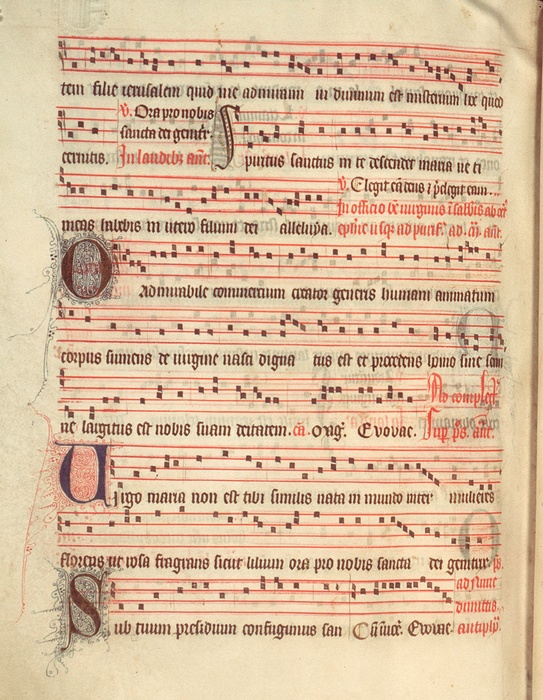 tem filie ierusalem quid me admiramini divinum est misterium hoc quod
V. Ora pro nobis
sancta dei genitr.
cernitis. In laudibz ant. Spiritus sanctus in te descendet maria ne ti
V. Elegit eam deus et pelegit eam.
In officio be virginis
meas habebis in utero filium dei alleluya. ephie usqz ad purif. ad ant.
O Admirabile commercium creator generis humani animatum
corpus sumens de virgine nasci digna tus est et procedens homo sine semi
Ad complet.
ne largitus est nobis suam deitatem. Euovae. Sup ps. ant.
Uirgo maria non est tibi similis nata in mundo inter mulieres
florens ut rosa fragrans sicut lilium ora pro nobis sancta dei genitrix ps.
ad
dimittis.
Sub tuum presidium confugimus san Euovae. antiph.